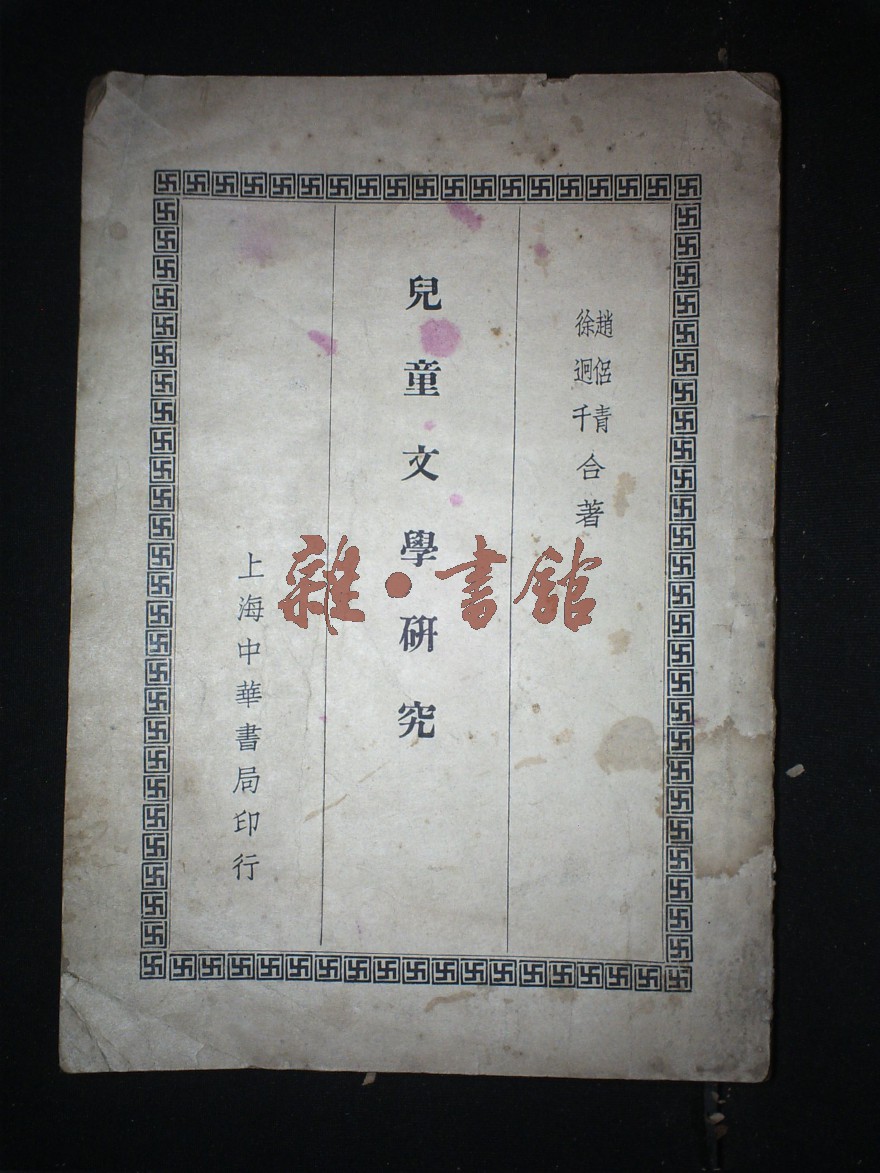 趙侶青
徐迥千
合著
兒童文學研究
上海中華書局印行
雜·書館